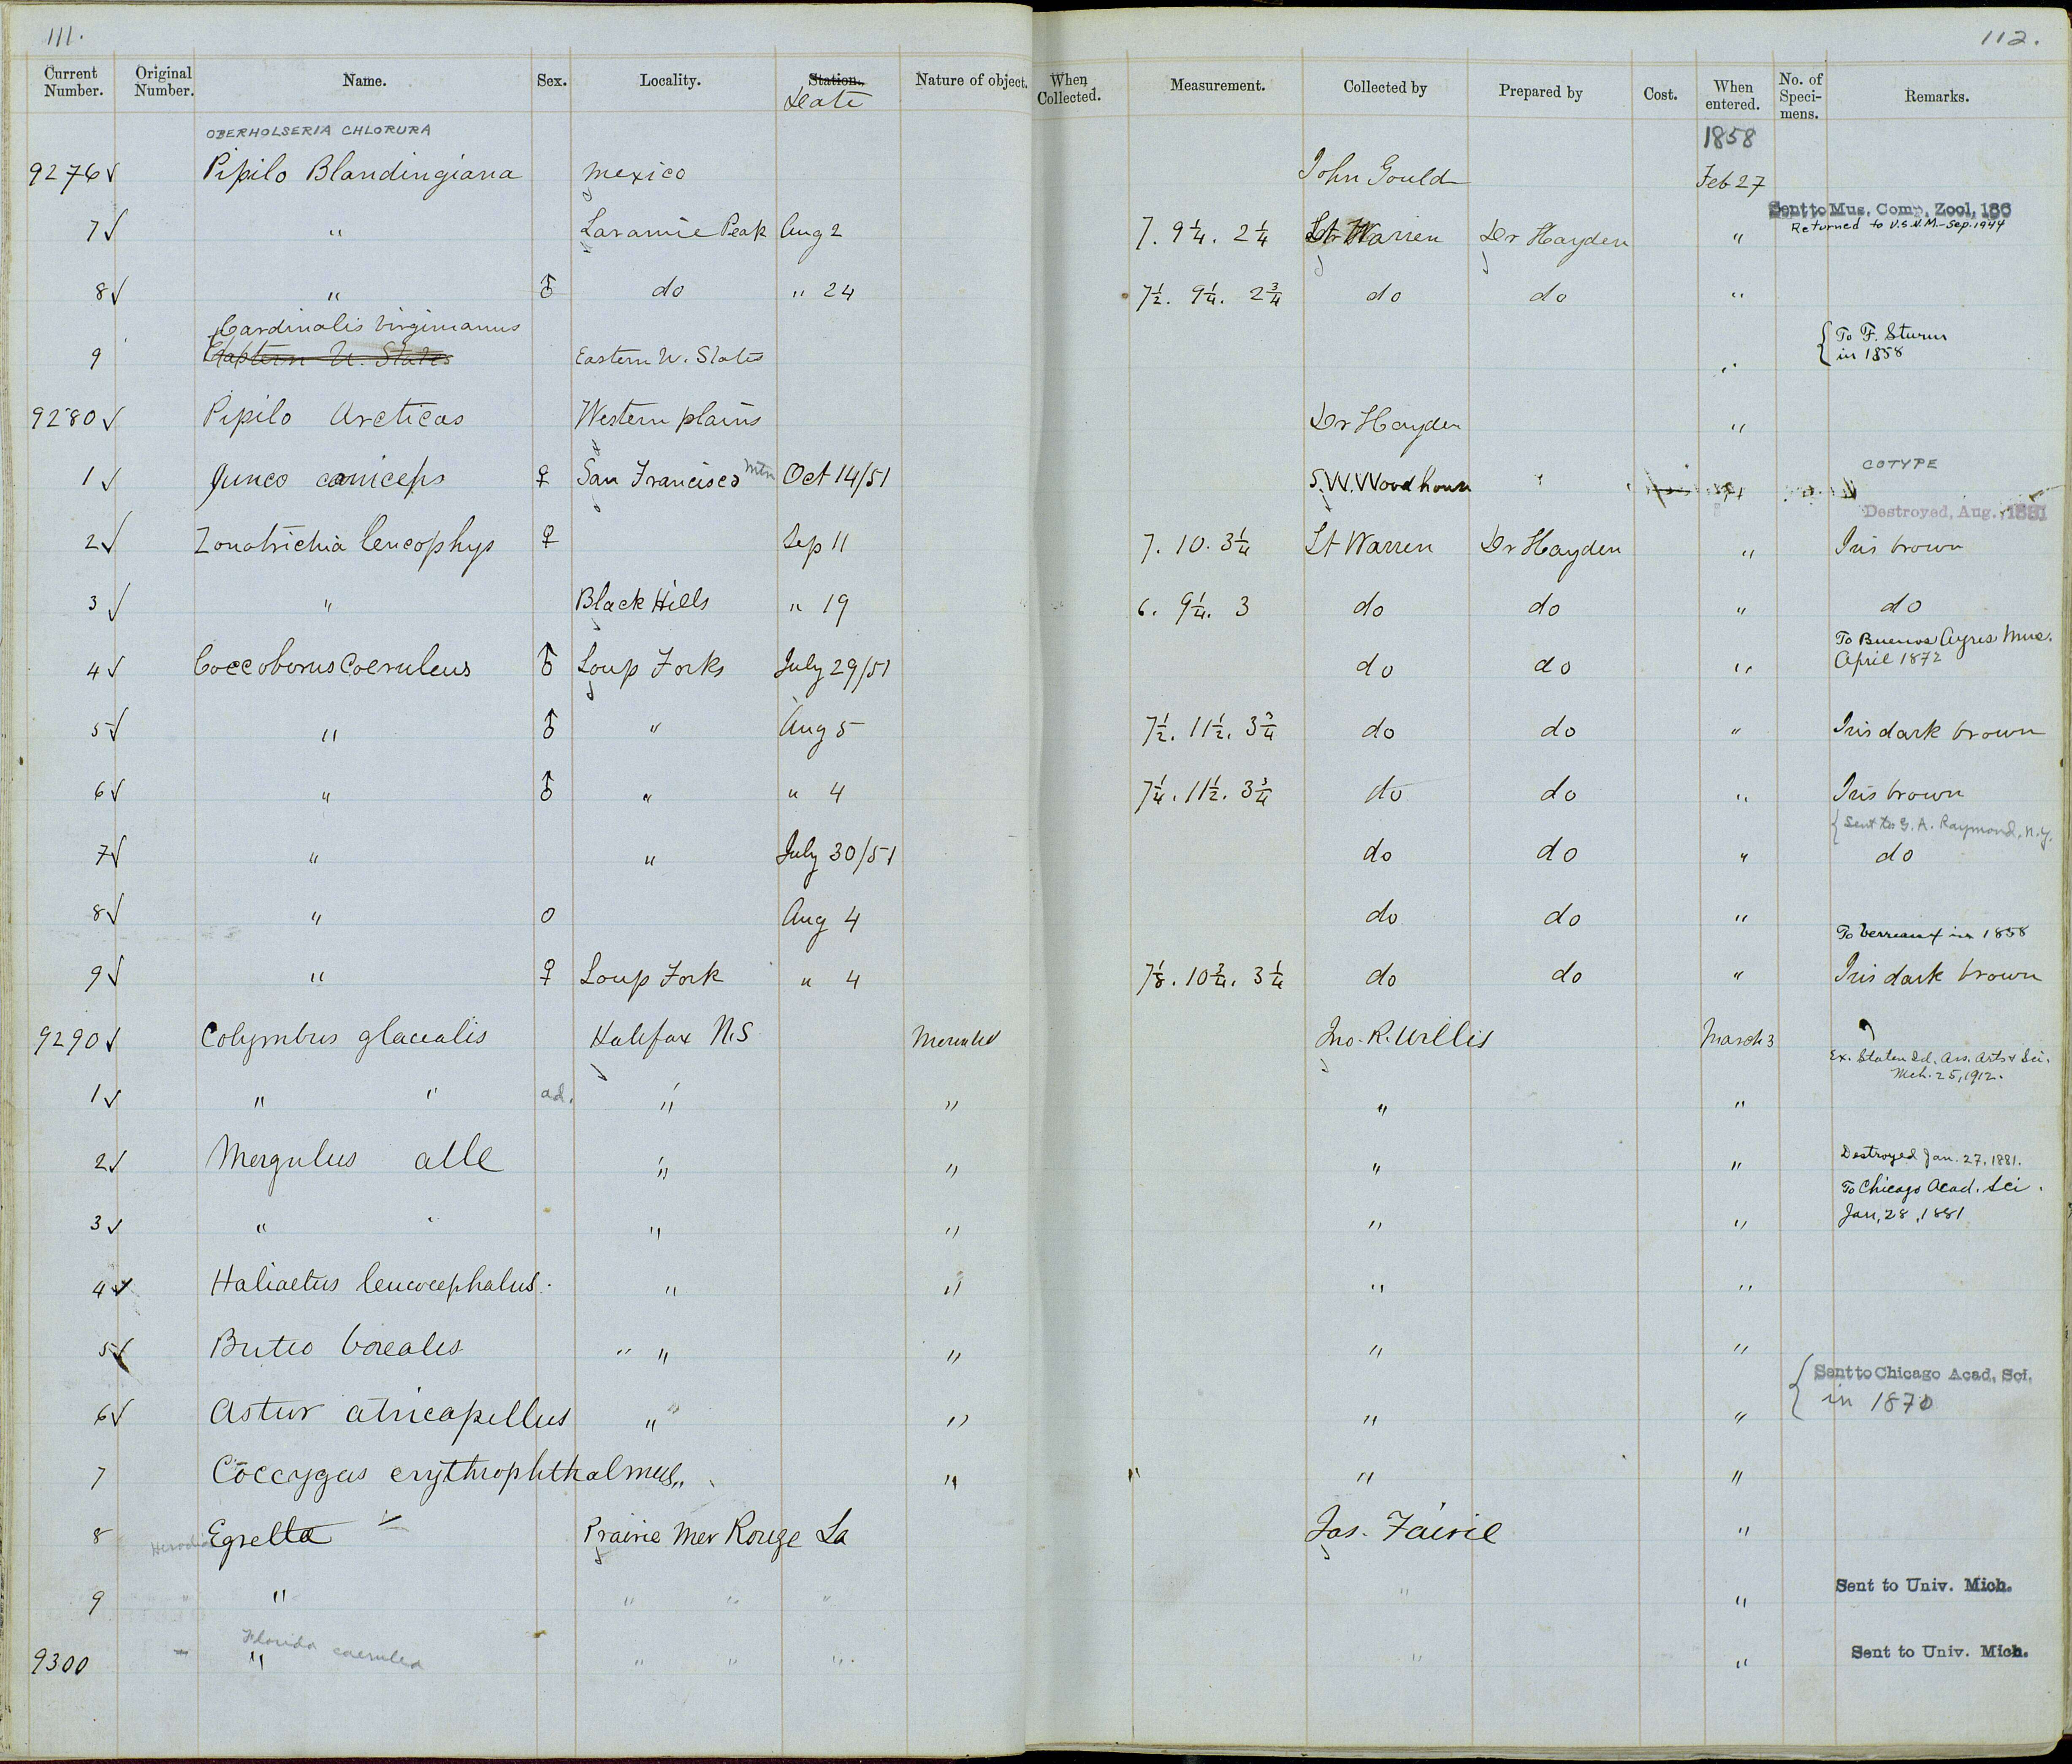 111.
112.
Current Number. Original Number. Name. Sex. Locality. Station. Nature of object. When Collected. Measurement. Collected by Prepared by Cost. When entered. No. of Speci-mens. Remarks.
Date
OBERHOLSERIA CHLORURA
1858
9276 Pipilo Blandingiana Mexico John Gould Feb 27
Sent to Mus. Comp. Zool, 186
Returned to U.S.N.M.-Sep. 1944
7 " Laramie Peak Aug 2 7. 9¼. 2¼ Lt Warren Dr Hayden "
8 " ♂ do " 24 7½. 9¼. 2¾ do do "
Cardinalis Virginianus
9 Eastern U. States Eastern U. States " To F. Sturm in 1858
9280 Pipilo Arcticus Western plains Dr Hayden "
COTYPE
1 Junco caniceps ♀ San Francisco Mtn Oct 14/51 S.W. Woodhouse "
Destroyed, Aug. 1881
2 Zonotrichia leucophys ♀ Sep 11 7. 10. 3¼ Lt Warren Dr Hayden " Iris brown
3 " Black Hills " 19 6. 9¼. 3 do do " do
To Buenos Ayres Mus.
4 Coccoborus Coeruleus ♂ Loup Forks July 29/51 do do " April 1872
5 " ♂ " Aug 5 7½. 11½. 3¾ do do " Iris dark brown
6 " ♂ " " 4 7¼. 11½. 3¾ do do " Iris brown
Sent to G. A. Raymond, N.Y.
7 " " July 30/51 do do " do
8 " O Aug 4 do do "
To Verreaux in 1858
9 " ♀ Loup Fork " 4 7⅛. 10¾. 3¼ do do " Iris dark brown
9290 Colymbus glacialis Halifax N.S Mounted Jno. R. Willis March 3
Ex. Staten Id. Ass. Arts & Sci.
Mch. 25, 1912.
1 " " ad. " " " "
2 Mergulus alle " " " " Destroyed Jan. 27. 1881.
To Chicago Acad. Sci.
3 " " " " " " Jan, 28, 1881
4 Haliaetus leucocephalus. " " " "
5 Buteo borealis " " " " "
Sent to Chicago Acad. Sci.
in 1870
6 Astur atricapillus " " " "
7 Coccygus erythrophthalmus " " " " "
8 Herodias Egretta Prairie Mer Rouge La Jas. Fairie "
9 " " " " " " " Sent to Univ. Mich.
Florida caerulea
9300 " " " " " " Sent to Univ. Mich.